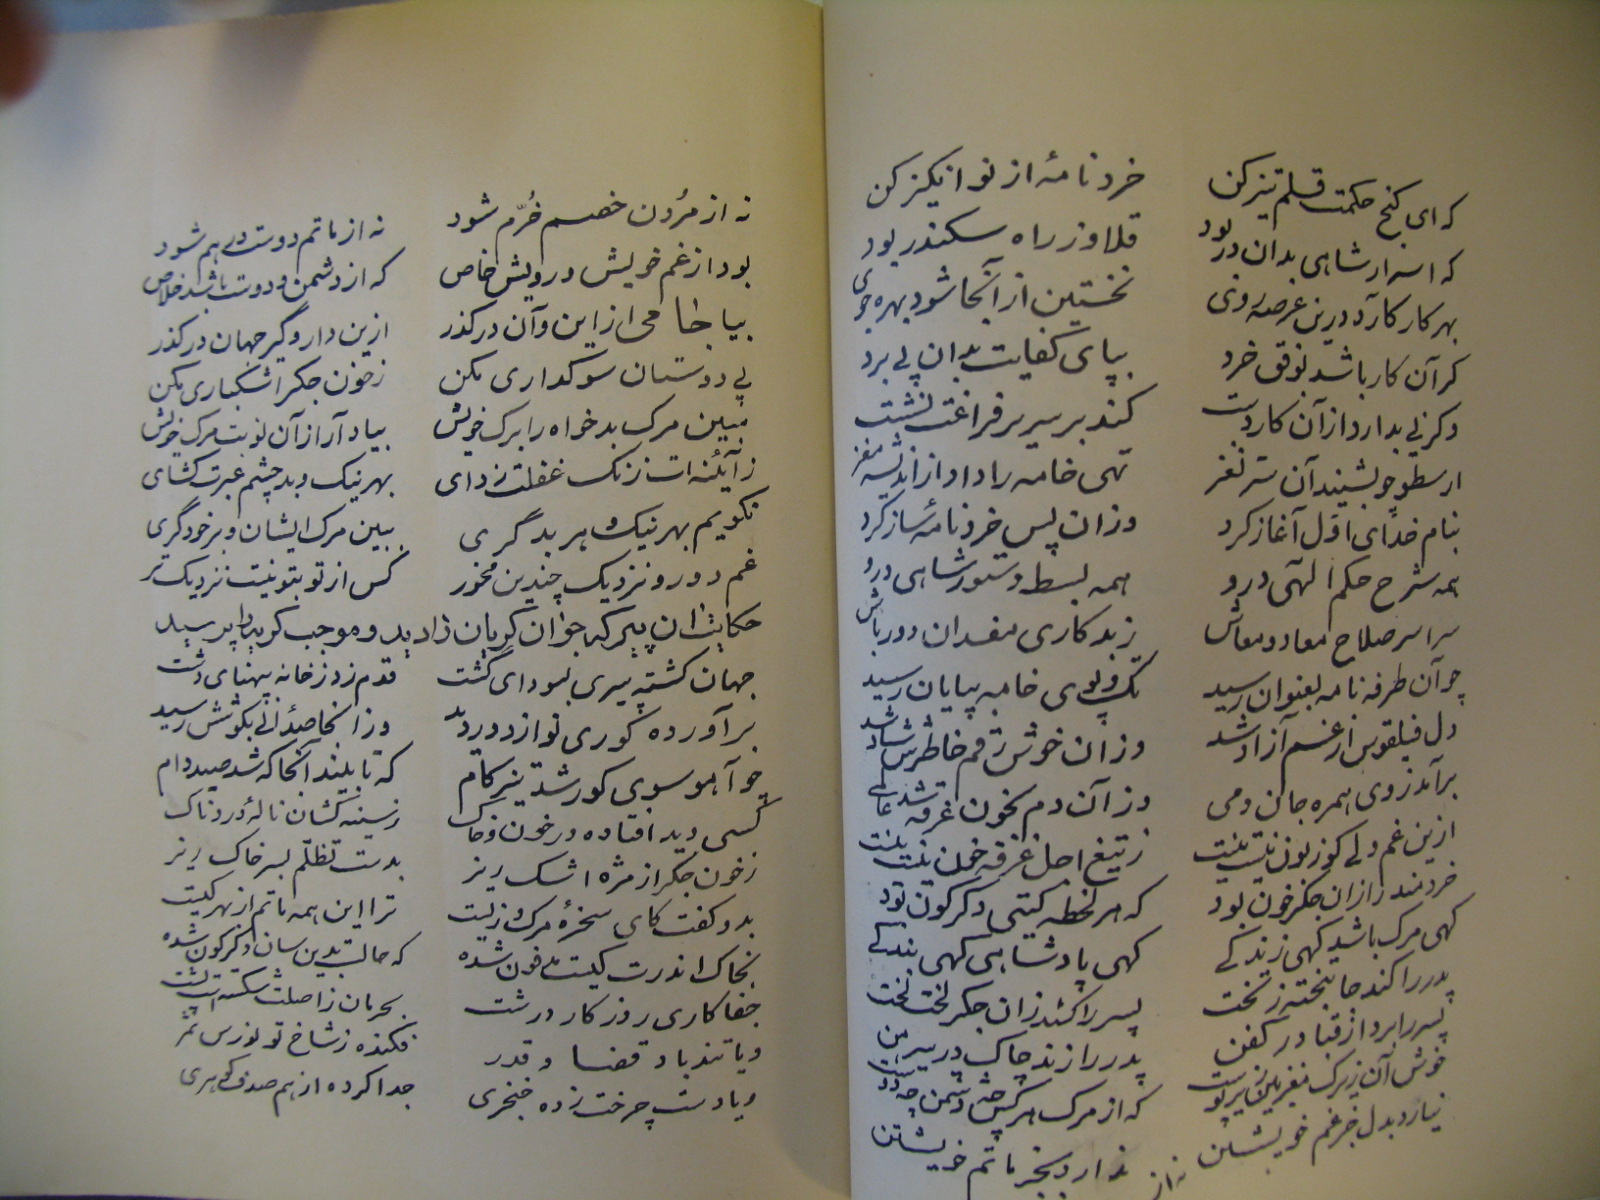 که ای گنج حکمت قلم تیز کن خردنامهٔ از نو انگیز کن
که اسرار شاهی بدان در بود قلاوز راه سکندر بود
بهر کار کآرد درین عرصه روی نخستین از آنجا شود بهره جوی
گر آن کار باشد بوفق خرد بپای کفایت بدان پی برد
وگر نی بدارد از آن کار دست کند بر سریر فراغت نشست
ارسطو چو بشنید آن سر نغز تهی خامه را داد از اندیشه مغز
بنام خدای اول آغاز کرد وزان پس خردنامهٔ ساز کرد
همه شرح حکم الهی درو همه بسط دستور شاهی درو
سراسر صلاح معاد و معاش ز بدکاری مفسدان دور باش
چو آن طرفه نامه بعنوان رسید تک و پوی خامه بپایان رسید
دل فیلقوس از غم آزاد شد وزان خوش رقم خاطرش شاد شد
برآمد ز وی همره جان دمی وزآن دم بخون غرقه شد عالمی
ازین غم دلی کو زبون نیست نیست ز تیغ اجل غرقه خون نیست نیست
خردمند زان جگر خون بود که هر لحظه گیتی دگرگون بود
گهی مرگ باشد گهی زندگی گهی پادشاهی گهی بندگی
پدر را کند جا بتخته ز تخت پسر را کند زان جگر لخت لخت
پسر را برد از قبا در کفن پدر را زند چاک در پیرهن
خوش آن زیرک مغز بین زیر پوست که از مرگ هر کس چه دشمن چه دوست
نیارد بدل جز غم خویشتن ندارد بجز ماتم خویشتن
نه از
نه از مردن خصم خرّم شود نه از ماتم دوست درهم شود
بود از غم خویش درویش خاص که از دشمن و دوست باشد خلاص
بیا جامی از این و آن درگذر ازین دار و گیر جهان درگذر
پی دوستان سوکداری مکن ز خون جگر اشکباری مکن
مبین مرگ بدخواه را برگ خویش بیاد آر از آن نوبت مرگ خویش
ز آیئنه ات زنگ غفلت زدای بهر نیک و بد چشم عبرت گشای
نگویم بهر نیک و هر بد گری ببین مرگ ایشان و بر خود گری
غم دور و نزدیک چندین مخور کس از تو بتو نیست نزدیک تر
حکایت آن پیر که جوان گریان را دید و موجب گریه را پرسید
جهان گشته پیری بسودای گشت قدم زد ز خانه بپهنای دشت
برآورده گوری نو از دور دید وز آنجا صدائی بگوشش رسید
چو آهو سوی گور شد تیز گام که تا بیند آنجا که شد صید دام
کسی دید افتاده در خون و خاک ز سینه کشان نالهٔ دردناک
ز خون جگر از مژه اشک ریز بدست تظلّم بسر خاک ریز
بدو گفت کای سخرهٔ مرگ و زیست ترا این همه ماتم از بهر کیست
بخاک اندرت کیست مدفون شده که حالت بدین سان دگرگون شده
جفاکاری روزگار درشت بحرمان ز اصلت شکسته است پشت
و یا تندباد قضا و قدر فکنده ز شاخ تو نورس ثمر
و یا دست چرخت زده خنجری جدا کرده از هم صدف گوهری